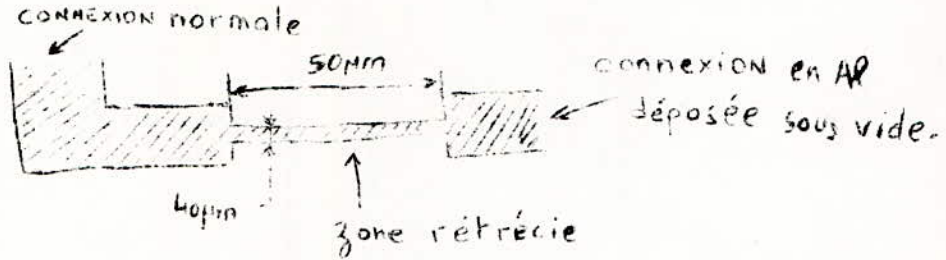 CONNEXION normale
50µm
connexion en Al
déposée sous vide.
40µm
zone rétrécie